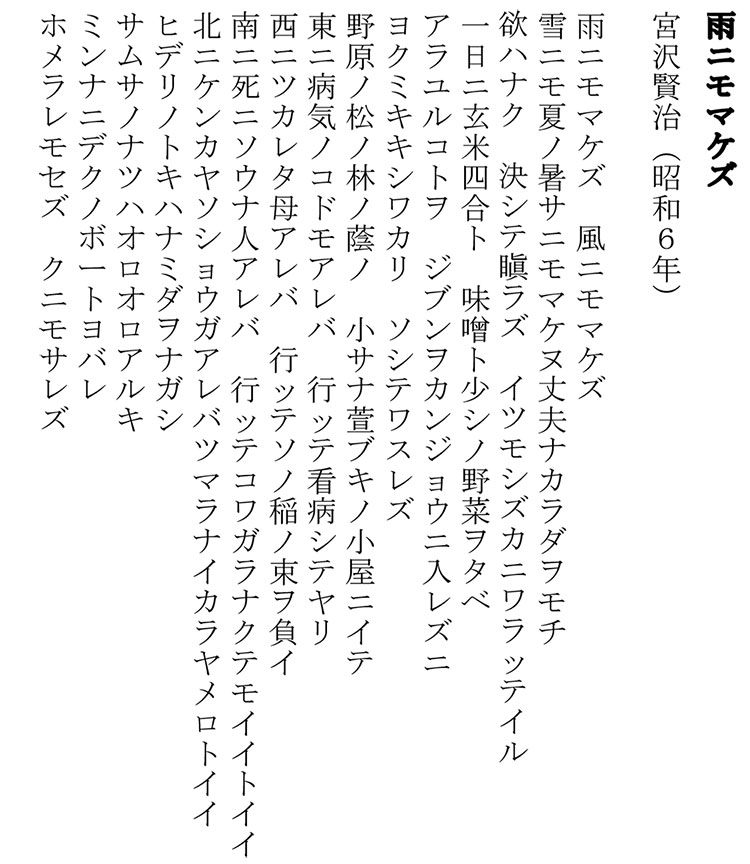 雨ニモマケズ
宮沢賢治（昭和６年）
雨ニモマケズ　風ニモマケズ
雪ニモ夏ノ暑サニモマケヌ丈夫ナカラダヲモチ
欲ハナク　決シテ瞋ラズ　イツモシズカニワラッテイル
一日ニ玄米四合ト　味噌ト少シノ野菜ヲタベ
アラユルコトヲ　ジブンヲカンジョウニ入レズニ
ヨクミキキシワカリ　ソシテワスレズ
野原ノ松ノ林ノ蔭ノ　小サナ萱ブキノ小屋ニイテ
東ニ病気ノコドモアレバ　行ッテ看病シテヤリ
西ニツカレタ母アレバ　行ッテソノ稲ノ束ヲ負イ
南ニ死ニソウナ人アレバ　行ッテコワガラナクテモイイトイイ
北ニケンカヤソショウガアレバツマラナイカラヤメロトイイ
ヒデリノトキハナミダヲナガシ
サムサノナツハオロオロアルキ
ミンナニデクノボートヨバレ
ホメラレモセズ　クニモサレズ